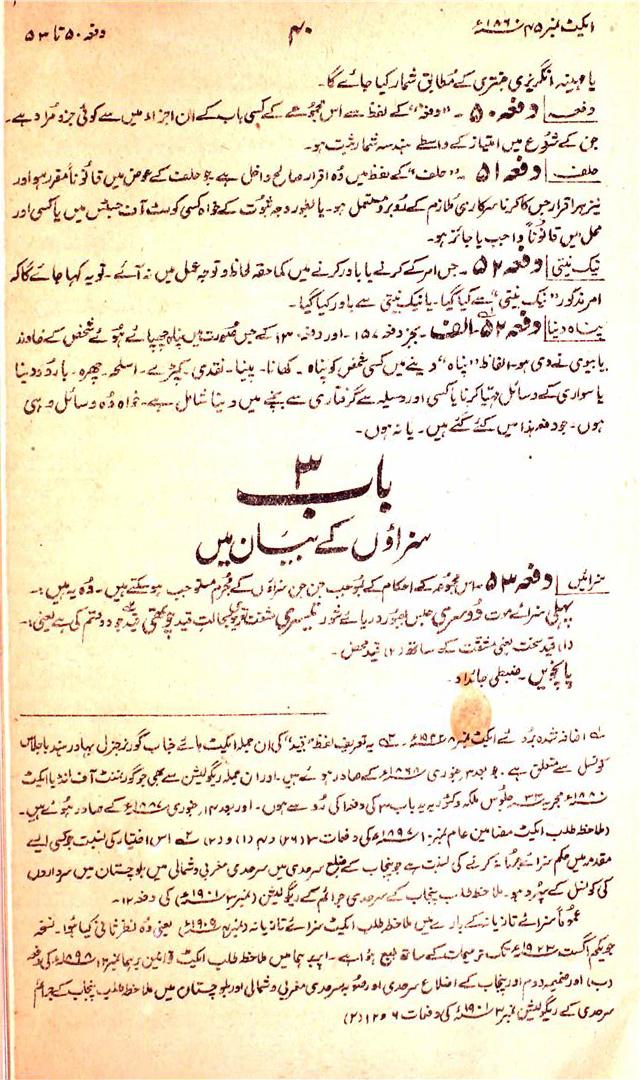 ایکٹ نمبر ۴۵ ۱۸۶۰ء
۴۰
دفعہ ۵۰ تا ۵۳
یا مہینہ انگریزی جنتری کے مطابق شمار کیا جائے گا۔
دفعہ | دفعہ ۵۰۔ "دفعہ" کے لفظ سے اس مجموعے کے کسی باب کے ان اجزاء میں سے کوئی جزو مراد ہے۔
جن کے شروع میں امتیاز کے واسطے ہندسہ شمار ثبت ہو۔
حلف | دفعہ ۵۱۔ "حلف" کے لفظ میں وہ اقرار صالح داخل ہے جو حلف کے عوض میں قانوناً مقرر ہو اور
نیز ہر اقرار جس کا کرنا سرکاری ملازم کے روبرو مستعمل ہو۔ یا بطور وجہ ثبوت کے خواہ کسی کورٹ آف جسٹس میں یا کسی اور
محل میں قانوناً واجب یا جائز ہو۔
نیک نیتی | دفعہ ۵۲۔ جس امر کے کرنے یا باور کرنے میں کماحقہ لحاظ و توجہ عمل میں نہ آئے۔ تو یہ کہا جائے گا کہ
امر مذکور "نیک نیتی" سے کیا گیا۔ یا نیک نیتی سے باور کیا گیا۔
پناہ دینا | دفعہ ۵۲۔الف۔ بجز دفعہ ۱۵۷۔ اور دفعہ ۱۳۰ کے جس صورت میں پناہ چھپائے ہوئے شخص کے خاوند
یا بیوی نے دی ہو۔ الفاظ "پناہ" دینے میں کسی شخص کو پناہ۔ کھانا۔ پینا۔ نقدی۔ کپڑے۔ اسلحہ۔ چھرہ۔ بارود دینا
یا سواری کے وسائل مہیا کرنا یا کسی اور وسیلہ سے گرفتاری سے بچنے میں دینا شامل ہے۔ خواہ وہ وسائل وہی
ہوں۔ جو دفعہ ہذا میں کئے گئے ہیں۔ یا نہ ہوں۔
باب ۳
سزاؤں کے بیان میں
سزائیں | دفعہ ۵۳۔ اس مجموعہ کے احکام کے بموجب جن جن سزاؤں کے مجرم مستوجب ہو سکتے ہیں۔ وہ یہ ہیں:۔
پہلی سزائے موت دوسری حبس بعبور دریائے شور تیسری مشقت تعزیری بحالت قید چوتھی قید جو دو قسم کی ہے یعنی:۔
(۱) قید سخت یعنی مشقت کے ساتھ (۲) قید محض۔
پانچویں۔ ضبطی جائداد۔
اضافہ شدہ بروئے ایکٹ نمبر ۸ ۱۹۴۲ء۔ یہ تعریف لفظ "قید" کی ان جملہ ایکٹ ہائے جناب گورنر جنرل بہادر ہند باجلاس
کونسل سے متعلق ہے۔ جو بعد ۳ جنوری ۱۸۶۸ء کے صادر ہوئے ہیں۔ اور ان جملہ ریگولیشن سے بھی جو گورنمنٹ آف انڈیا ایکٹ
مجریہ ۳۳ جلوس ملکہ وکٹوریہ باب ۳ کی دفعہ ۱ کی رو سے ہوں۔ اور بعد ۱۴ جنوری ۱۸۸۷ء کے صادر ہوئے ہیں۔
(ملاحظہ طلب ایکٹ مضامین عام نمبر ۱۰ ۱۸۹۷ء کی دفعات ۳ (۲۶) و ۴ (۱) و (۲) اس اختیار کی نسبت جو کسی ایسے
مقدمہ میں حکم سزائے جرمانہ کرنے کی نسبت ہے جو پنجاب کے ضلع سرحدی میں سرحدی مغربی و شمالی میں بلوچستان میں سرداروں
کی کونسل کے سپرد ہو۔ ملاحظہ طلب پنجاب کے سرحدی جرائم کے ریگولیشن (نمبر ۳ ۱۹۰۱ء) کی دفعہ ۱۲۔
عموماً سزائے تازیانہ کے بارے میں ملاحظہ طلب ایکٹ سزائے تازیانہ نمبر ۴ ۱۹۰۹ء یعنی وہ نظر ثانی کیا ہوا۔ نسخہ
جو یکم اگست ۱۹۲۳ء تک ترمیمات کے ساتھ طبع ہوا ہے۔ اپر برہما میں ملاحظہ طلب ایکٹ قوانین برہما نمبر ۱۳ ۱۸۹۸ء کی دفعہ
(ب) اور ضمیمہ دوم اور پنجاب کے اضلاع سرحدی اور صوبہ سرحدی مغربی و شمالی اور بلوچستان میں ملاحظہ طلب پنجاب کے جرائم
سرحدی کے ریگولیشن نمبر ۳ ۱۹۰۱ء کی دفعات ۶ و ۱۲ (۲)